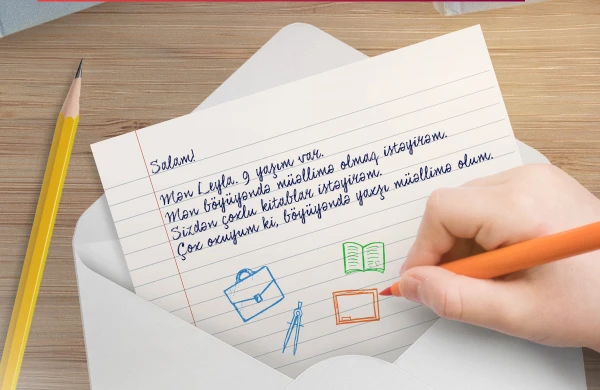 Salam!
Mən Leyla. 9 yaşım var.
Mən böyüyəndə müəllimə olmaq istəyirəm.
Sizdən çoxlu kitablar istəyirəm.
Çox oxuyum ki, böyüyəndə yaxşı müəllimə olum.